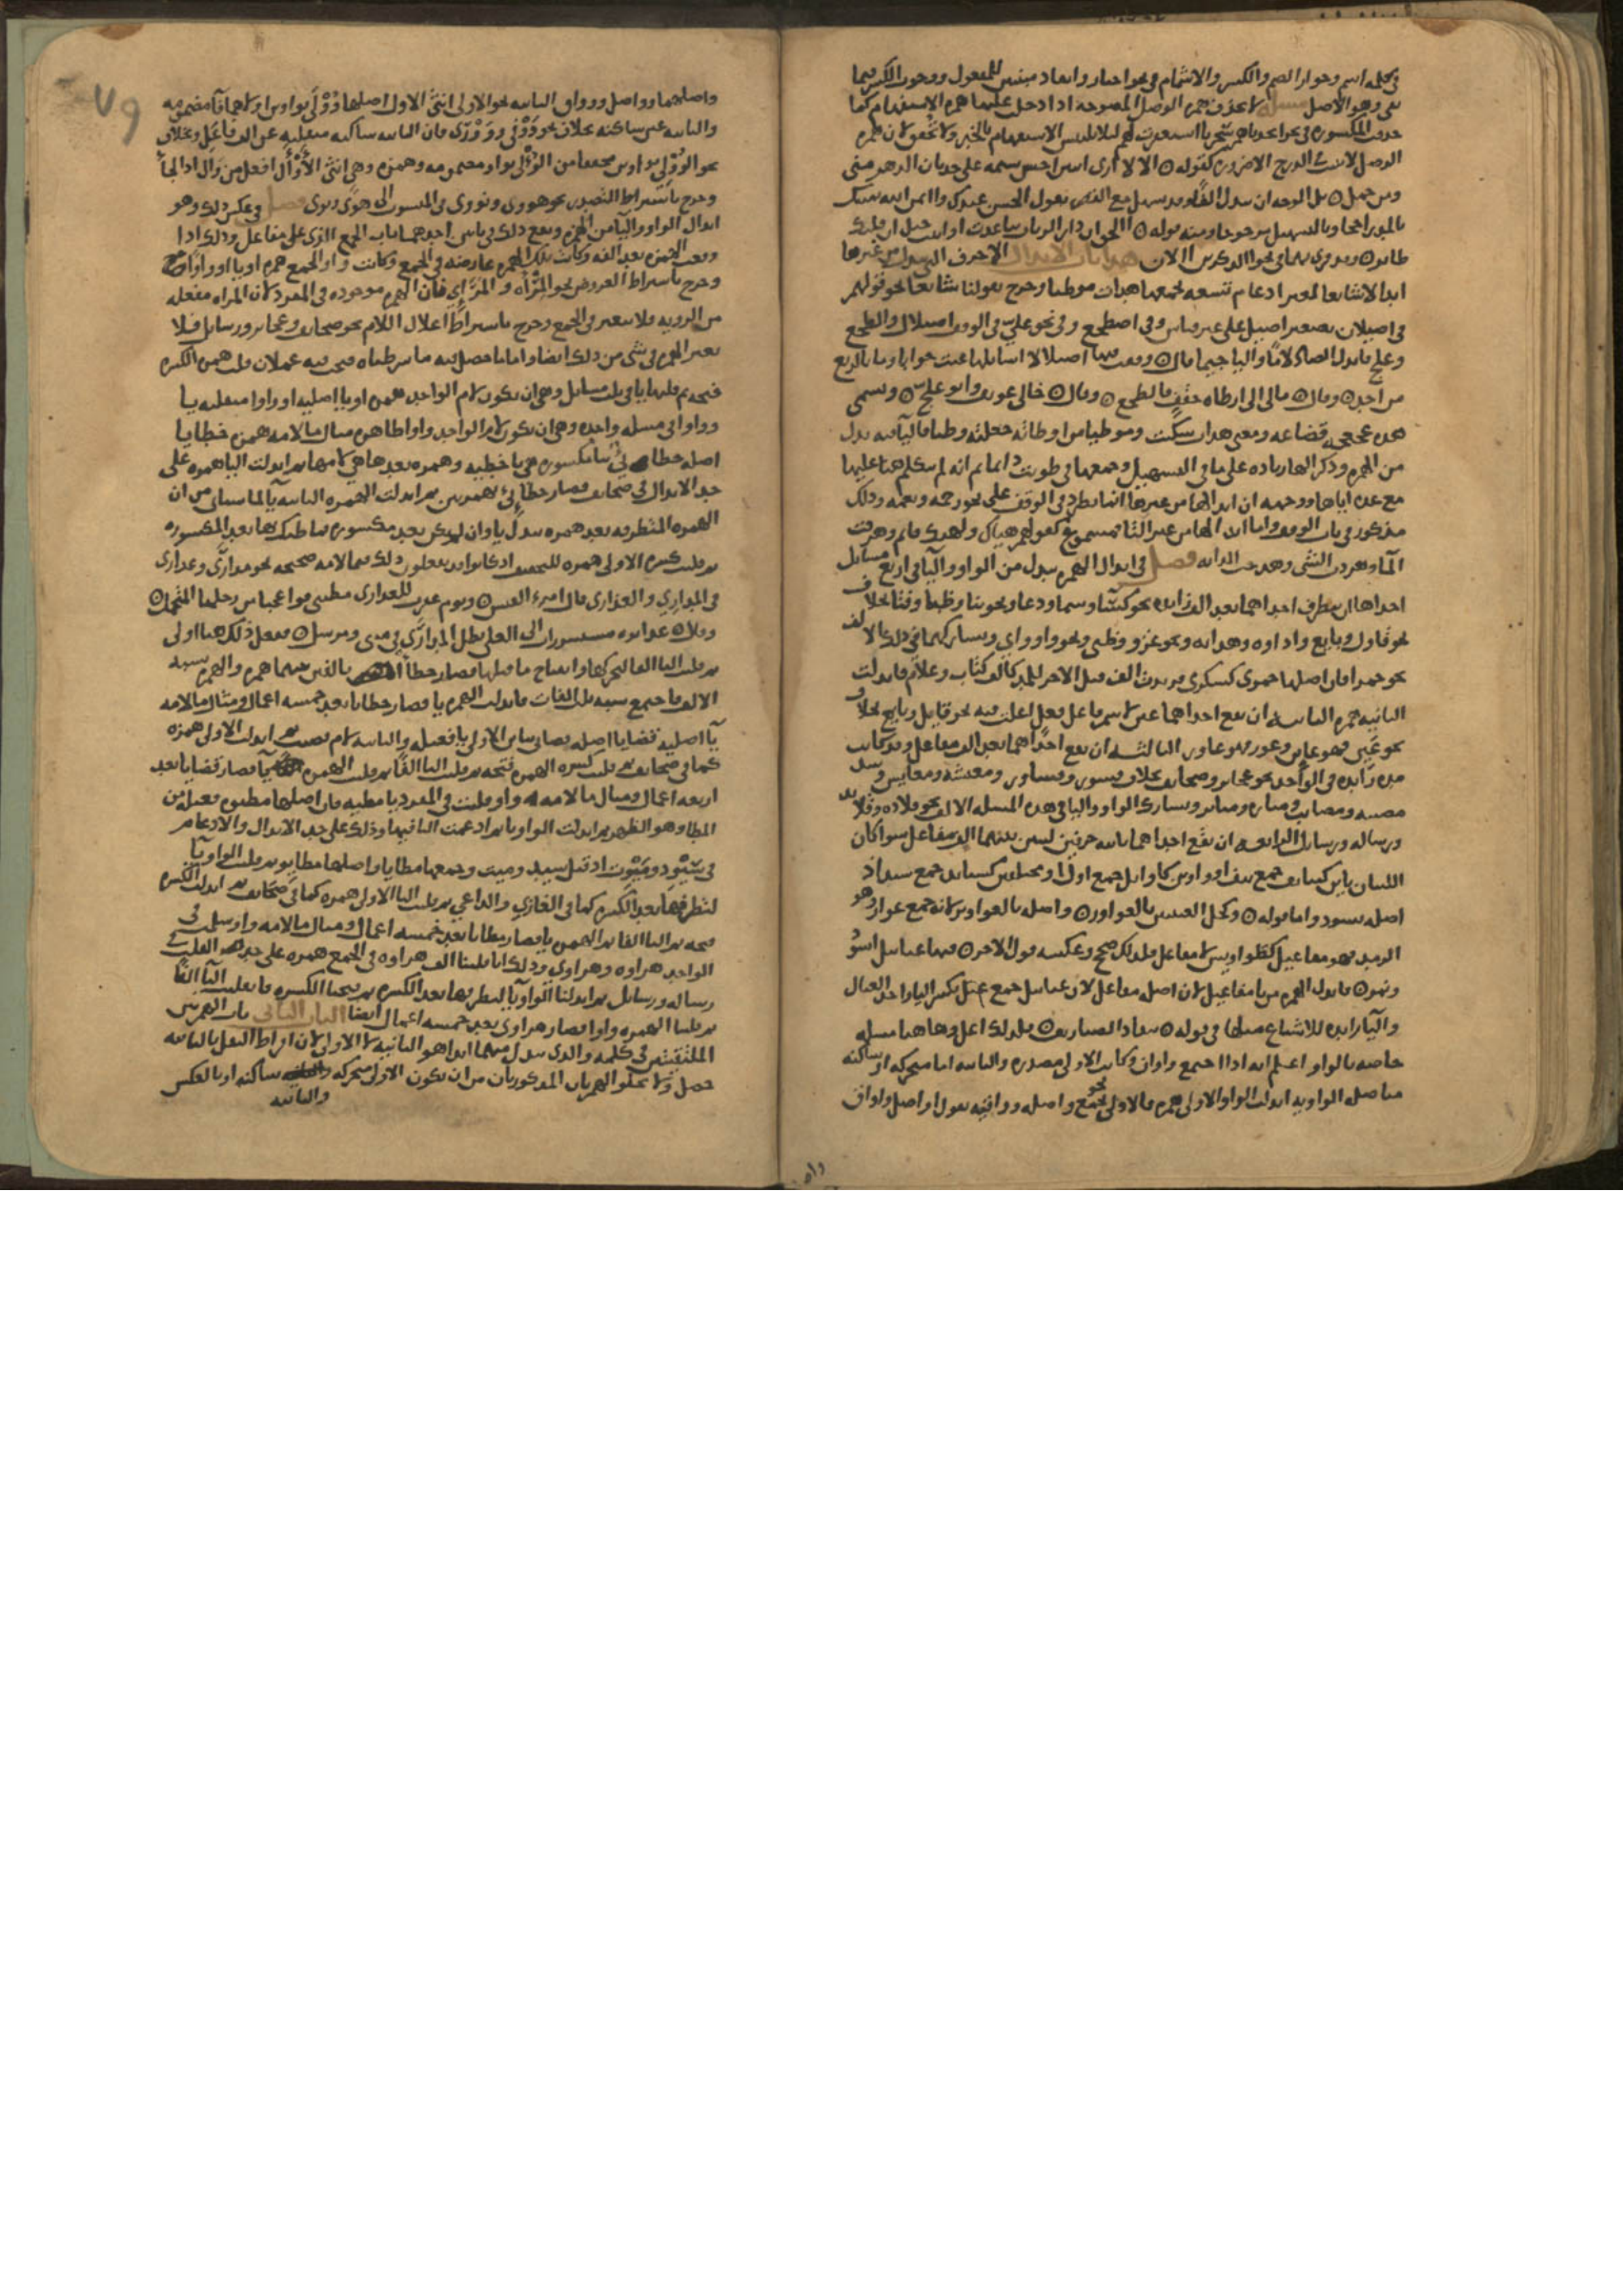 في كلمه اسم وجواز الضم والكسر والاشمام في نحو اختار وانقاد مبنيين للمفعول ووجوب الكسر فيما
بقي وهو الاصل مسله لا تحذف همزه الوصل المفتوحه اذا دخل عليها همزه الاستفهام كما
حذفت المكسوره في نحو اتخذناهم سخريا استغفرت لهم ليلا يلتبس الاستفهام بالخبر ولا تحقق لان همزه
الوصل لا تثبت في الدرج الا ضروره كقوله ٥ الا لا ارى اثنين احسن شيمه على حدثان الدهر مني
ومن جمل ٥ بل الوجه ان تبدل الفا وقد تسهل مع القصر تقول الحسن عندك واايمن الله يمينك
بالمد راجحا وبالتسهيل مرجوحا ومنه قوله ٥ االحق ان دار الرباب تباعدت او انبت حبل ان قلبك
طاير ٥ وقد قري بهما في نحو االذكرين االان هذا باب الابدال الاحرف التي تبدل من غيرها
ابدالا شايعا لغير ادغام تسعه يجمعها هدات موطيا وخرج بقولنا شايعا نحو قولهم
في اصيلان تصغير اصيل على غير قياس وفي اضطجع وفي نحو علي في الوقف اصيلال والطجع
وعلج بابدال الضاد لاما واليا جيما قال ٥ وقفت فيها اصيلالا اسايلها عيت جوابا وما بالربع
من احد ٥ وقال ٥ مال الى ارطاه حقف فالطجع ٥ وقال ٥ خالي عويف وابو علج ٥ وتسمى
هذه عجعجه قضاعه ومعنى هدات سكنت وموطيا من اوطاته جعلته وطيا فاليا فيه بدل
من الهمزه وذكر الها زياده على ما في التسهيل وجمعها في طويت دائما ثم انه لم يتكلم هنا عليها
مع عده اياها ووجهه ان ابدالها من غيرها انما يطرد في الوقف على نحو رحمه ونعمه وذلك
مذكور في باب الوقف واما ابدالها من غير التا فمسموع كقولهم هياك ولهنك قايم وهرقت
الما وهردت الشي وهرحت الدابه فصل في ابدال الهمزه تبدل من الواو واليا في اربع مسايل
احداها ان تتطرف احداهما بعد الف زايده نحو كسا وسما ودعا ونحو بنا وظبا وفنا بخلاف
نحو قاول وبايع واداوه وهدايه ونحو غزو وظبي ونحو واو واي وتشاركهما في ذلك الالف
نحو حمرا فان اصلها حمرى كسكرى فزيدت الف قبل الاخر للمد كالف كتاب وغلام فابدلت
الثانيه همزه الثانيه ان تقع احداهما عينا لاسم فاعل فعل اعلت فيه نحو قايل وبايع بخلاف
نحو عين فهو عاين وعور فهو عاور الثالثه ان تقع احداهما بعد الف مفاعل وقد كانت
مده زايده في الواحد نحو عجايز وصحايف بخلاف قسور وقساور ومعيشه ومعايش وشذ
مصيبه ومصايب ومناره ومناير ويشارك الواو واليا في هذه المسله الالف نحو قلاده وقلايد
ورساله ورسايل الرابعه ان تقع احداهما ثاني حرفين لينين بينهما الف مفاعل سوا كان
اللينان ياين كنيايف جمع نيف او واوين كاوايل جمع اول او مختلفين كسيايد جمع سيد اذ
اصله سيود واما قوله ٥ وكحل العينين بالعواور ٥ فاصله بالعواوير لانه جمع عوار وهو
الرمد فهو مفاعيل كطواويس لا مفاعل فلذلك صحح وعكسه قول الاخر ٥ فيها عيايل اسود
ونمر ٥ فابدل الهمزه من يا مفاعيل لان اصله مفاعل لان عيايل جمع عيل بكسر اليا واحد العيال
واليا زايده للاشباع مثلها في قوله ٥ تنقاد الصياريف ٥ فلذلك اعل وهاهنا مسله
خاصه بالواو اعلم انه اذا اجتمع واوان وكانت الاولى مصدره والثانيه اما متحركه او ساكنه
متاصله الواويه ابدلت الواو الاولى همزه فالاولى نحو جمع واصله وواقيه تقول اواصل واواق
واصلهما وواصل وو واق الثانيه نحو الاولى انثى الاول اصلها وُوْلَى بواوين اولاهما فا مضمومه
والثانيه عين ساكنه بخلاف نحو وُوْفِي وووري فان الثانيه ساكنه منقلبه عن الف فاعل وبخلاف
نحو الوُوْلى بواوين مخففا من الوُؤْلى بواو مضمومه وهمزه وهي انثى الاوال افعل من وال اذا لجا
وخرج باشتراط التصدير نحو هووي ونووي في المنسوب الى هوى ونوى فصل في عكس ذلك وهو
ابدال الواو واليا من الهمزه ويقع ذلك في بابين احدهما باب الجمع الذي على مفاعل وذلك اذا
وقعت الهمزه بعد الفه وكانت تلك الهمزه عارضه في الجمع وكانت لام الجمع همزه او يا او واوا
وخرج باشتراط العروض نحو المراه والمراي فان الهمزه موجوده في المفرد لان المراه مفعله
من الرويه فلا تغير في الجمع وخرج باشتراط اعلال اللام نحو صحايف وعجايز ورسايل فلا
تغير الهمزه في شي من ذلك ايضا واما ما حصل فيه ما شرطناه فيجب فيه عملان قلب كسره الهمزه
فتحه ثم قلبها يا في ثلث مسايل وهي ان تكون لام الواحد همزه او يا اصليه او واوا منقلبه يا
وواوا في مسله واحده وهي ان تكون لام الواحد واوا ظاهره مثال ما لامه همزه خطايا
اصله خطايِئ بيا مكسوره هي يا خطيه وهمزه بعدها هي لامها ثم ابدلت اليا همزه على
حد الابدال في صحايف فصار خطائئ بهمزتين ثم ابدلت الهمزه الثانيه يا لما سياتي من ان
الهمزه المتطرفه بعد همزه تبدل يا وان لم تكن بعد مكسوره فما ظنك بها بعد المكسوره
ثم قلبت كسره الاولى فتحه للتخفيف اذ كانوا قد يفعلون ذلك فيما لامه صحيحه نحو مدارى وعذارى
في المداري والعذاري قال امرء القيس ٥ ويوم عقرت للعذارى مطيتي فوا عجبا من رحلها المتحمل ٥
وقال ٥ غدايره مستشزرات الى العلى تضل المدارى في مثنى ومرسل ٥ ففعل ذلك هنا اولى
ثم قلبت اليا الفا لتحركها وانفتاح ما قبلها فصار خطاءا بالفين بينهما همزه والهمزه تشبه
الالف فاجتمع شبه ثلث الفات فابدلت الهمزه يا فصار خطايا بعد خمسه اعمال ومثال ما لامه
يا اصليه قضايا اصله قضايي بياين الاولى يا فعيله والثانيه لام قضيه ثم ابدلت الاولى همزه
كما في صحايف ثم قلبت كسره الهمزه فتحه ثم قلبت اليا الفا ثم قلبت الهمزه يا فصار قضايا بعد
اربعه اعمال ومثال ما لامه واو قلبت في المفرد يا مطيه فان اصلها مطيوه فعيله من
المطا وهو الظهر ثم ابدلت الواو يا ثم ادغمت اليا فيها وذلك على حد الابدال والادغام
في سَيْوِد ومَيْوِت اذ قيل سيد وميت وجمعها مطايا واصلها مطايو ثم قلبت الواو يا
لتطرفها بعد الكسره كما في الغازي والداعي ثم قلبت اليا الاولى همزه كما في صحايف ثم ابدلت الكسره
فتحه ثم اليا الفا ثم الهمزه يا فصار مطايا بعد خمسه اعمال ومثال ما لامه واو سلمت في
الواحد هراوه وهراوي وذلك انا قلبنا الف هراوه في الجمع همزه على حد القلب في
رساله ورسايل ثم ابدلنا الواو يا لتطرفها بعد الكسره ثم فتحنا الكسره فانقلبت اليا الفا
ثم قلبنا الهمزه واوا فصار هراوى بعد خمسه اعمال ايضا الباب الثاني باب الهمزتين
الملتقيتين في كلمه والذي يبدل منهما ابدا هو الثانيه لا الاولى لان افراط الثقل بالثانيه
حصل ولا تخلو الهمزتان المذكورتان من ان تكون الاولى متحركه والثانيه ساكنه او بالعكس
والثانيه